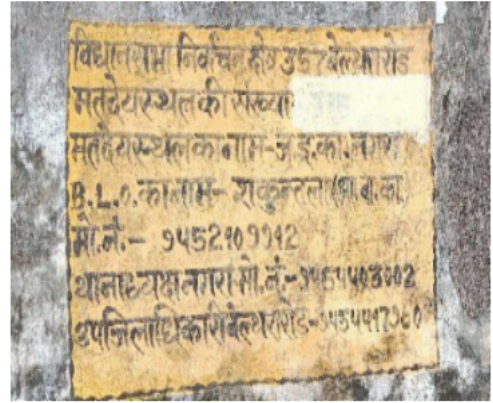 विधानसभा निर्वाचन क्षेत्र 357 बेल्थरा रोड
मतदेय स्थल की संख्या
मतदेय स्थल का नाम-ज.इ.का. नगरा
B.L.O. का नाम- शकुन्तला (आ.बा.का.)
मो.नं.-
थानाध्यक्ष नगरा मो.नं.-9454403002
उपजिलाधिकारी बेल्थरारोड-